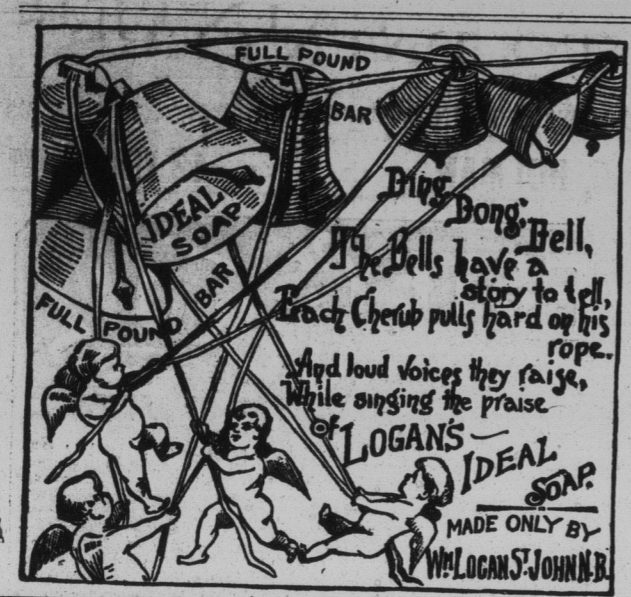 FULL POUND
BAR
IDEAL
SOAP
FULL POUND BAR
Ding
Dong,
Bell,
The Bells have a
story to tell,
Each Cherub pulls hard on his
rope.
And loud voices they raise,
While singing the praise
of LOGAN'S —
IDEAL
SOAP.
MADE ONLY BY
WM LOGAN ST JOHN N.B.